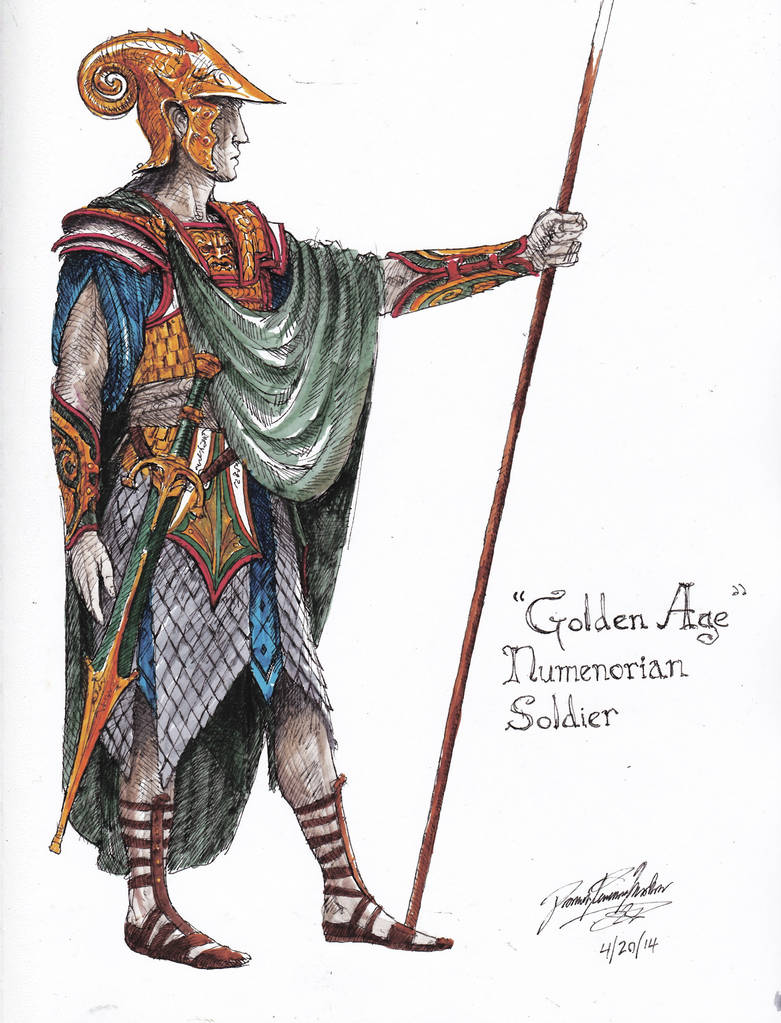 "Golden Age"
Numenorian
Soldier
4/20/14